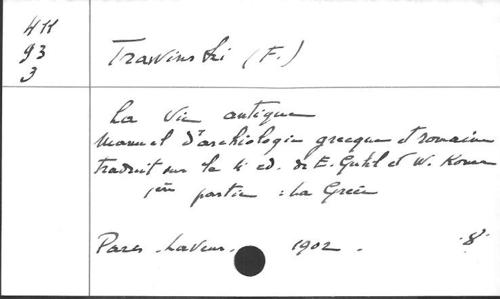 4K
93
3
Trawinski (F.)
La Vie antique
Manuel d'archéologie grecque et romaine
traduit sur la 4 ed. de E. Guhl et W. Koner
1ère partie : La Grèce
Paris. Laveur. 1902. 8°